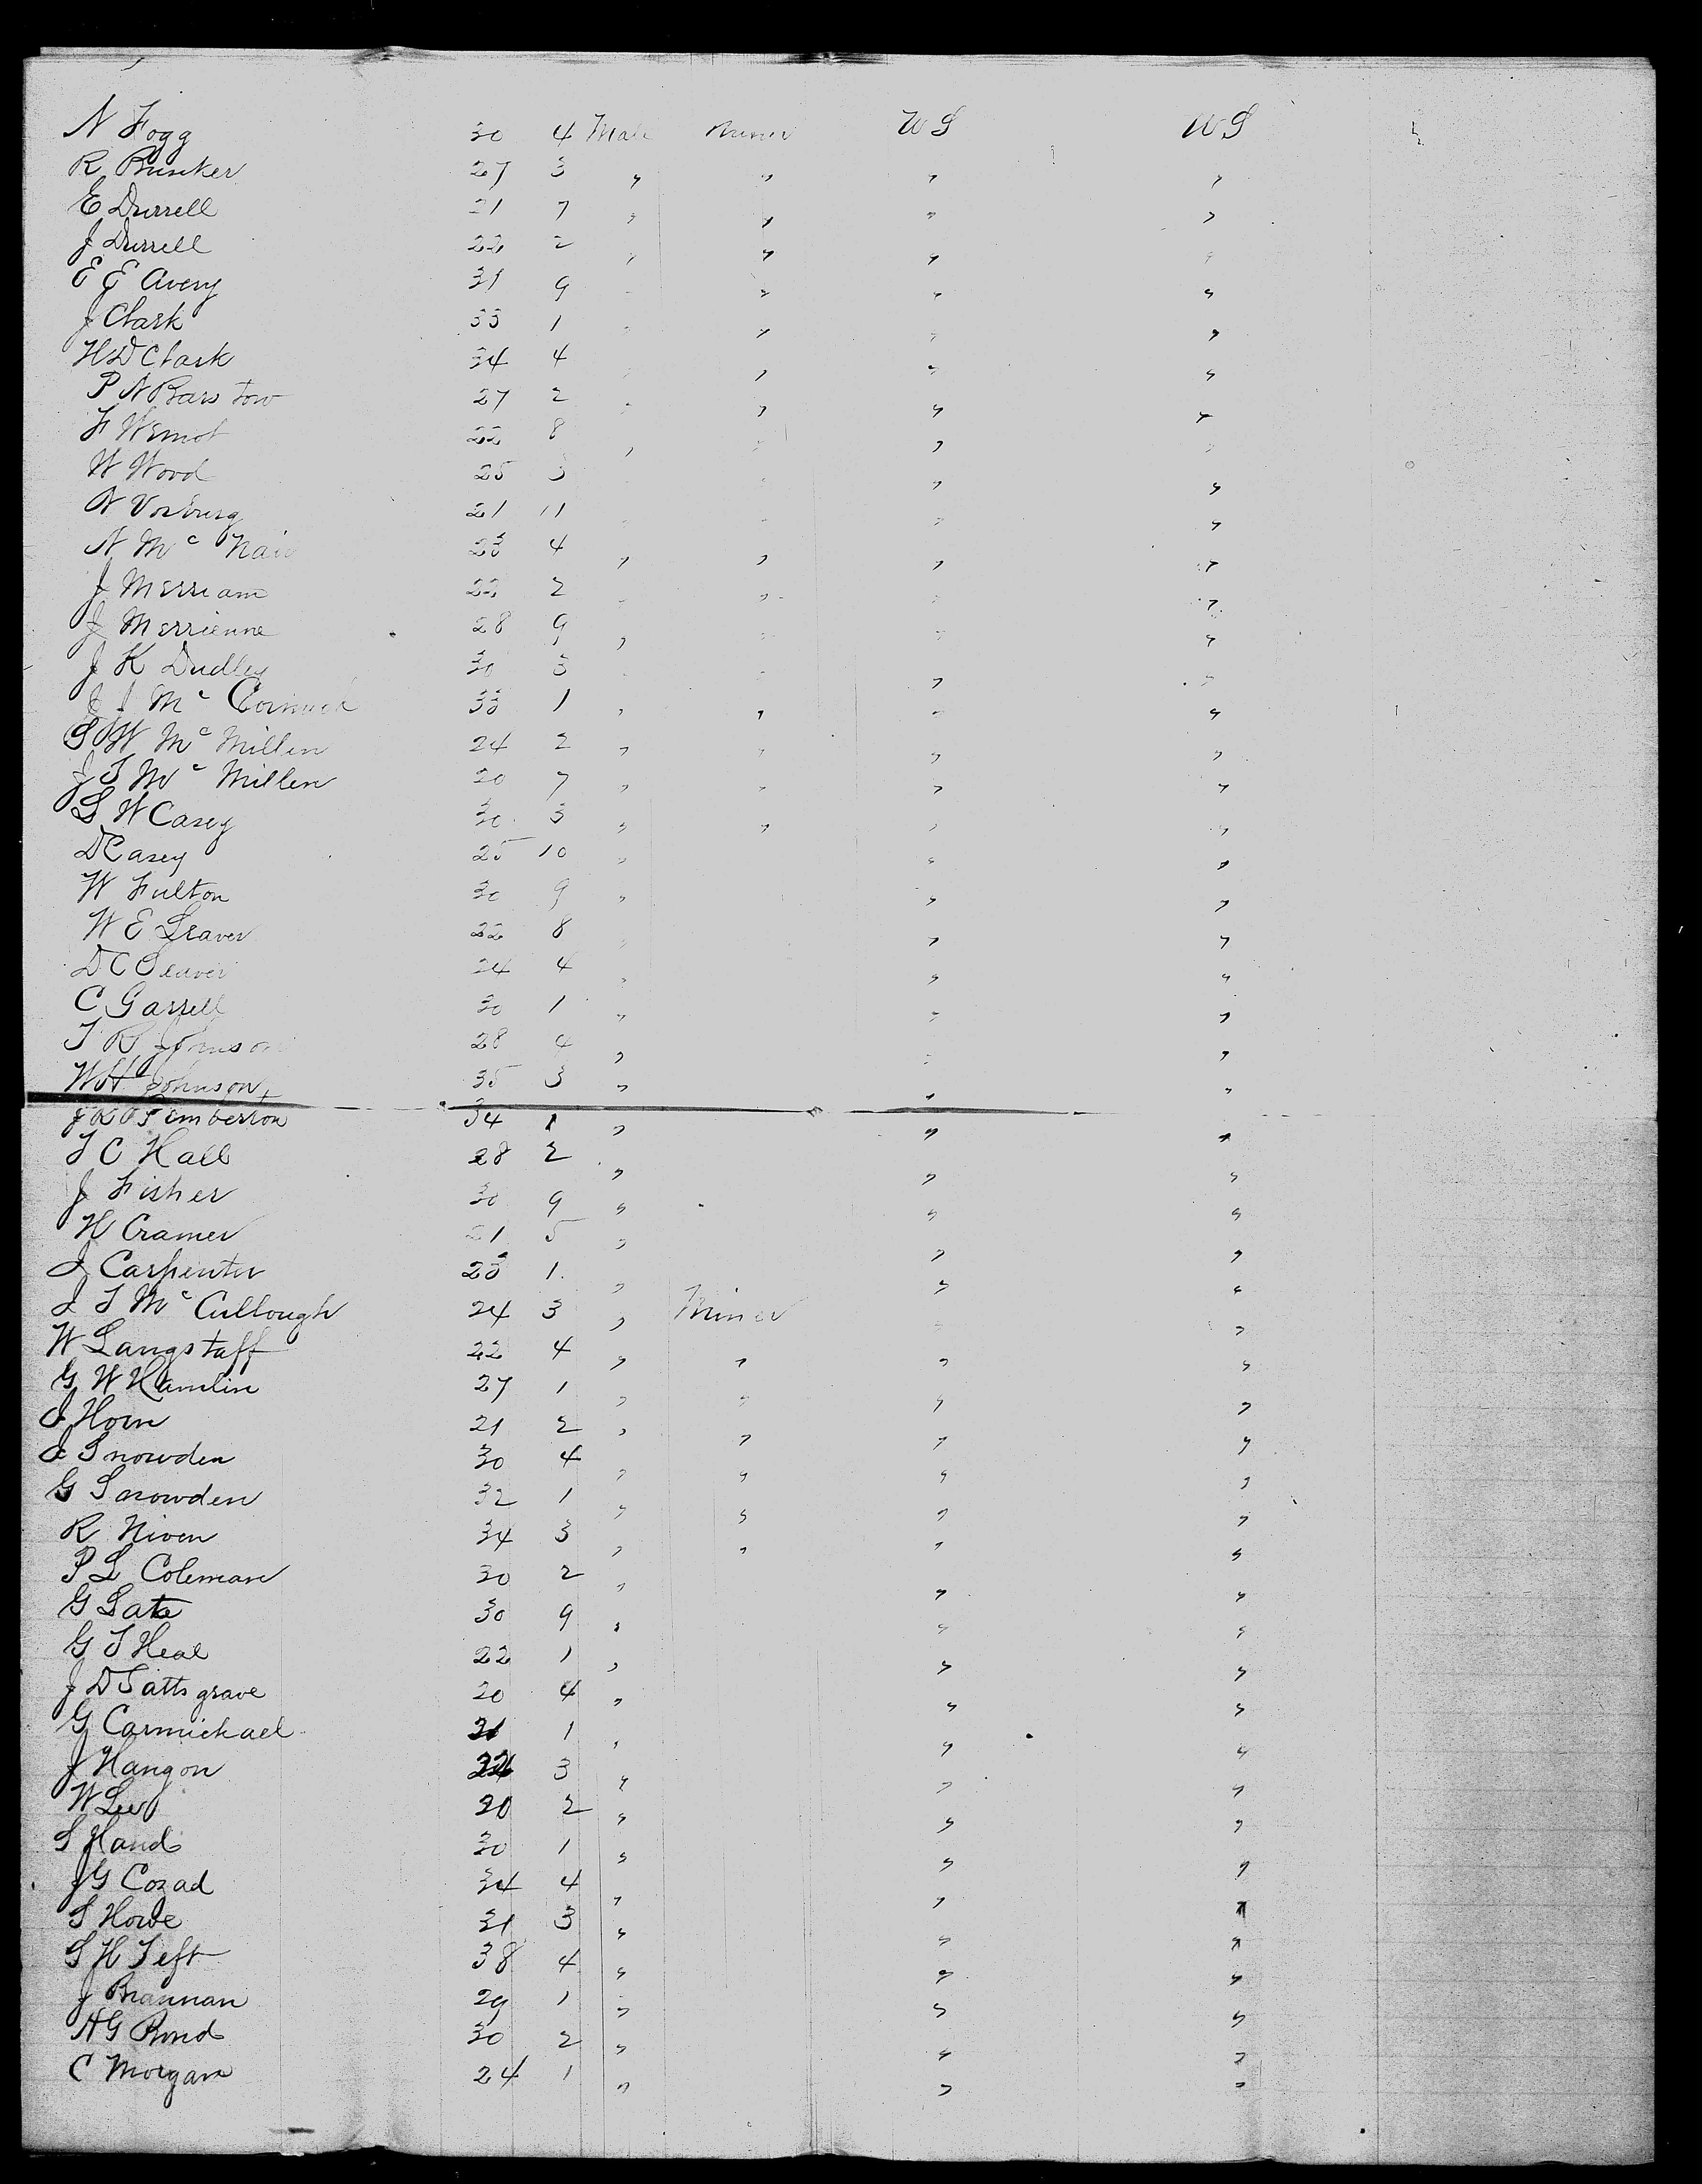 N Fogg 30 4 Male Miner U S U S
R Bunker 27 3 " " " "
E Durrell 21 7 " " " "
J Durrell 22 2 " " " "
E E Avery 31 9 " " " "
J Clark 33 1 " " " "
H D Clark 34 4 " " " "
P N Barstow 27 2 " " " "
F Wemot 22 8 " " " "
W Wood 25 3 " " " "
N Vosburg 21 11 " " " "
N Mc Nair 23 4 " " " "
J Merriam 22 2 " " " "
J Merrienne 28 9 " " " "
J K Dudley 30 3 " " " "
J J Mc Cormick 33 1 " " " "
S W Mc Millen 24 2 " " " "
J T Mc Millen 20 7 " " " "
L W Casey 30 3 " " " "
D Casey 25 10 " " "
W Fulton 30 9 " " "
W E Seaver 22 8 " " "
D C Seaver 24 4 " " "
C Garrell 30 1 " " "
T R Johnson 28 4 " " "
W H Johnson 35 3 " " "
Pemberton 34 1 " " "
T C Hall 28 2 " " "
J Fisher 30 9 " " "
H Cramer 21 5 " " "
J Carpenter 23 1 " " "
J T Mc Cullough 24 3 " Miner " "
W Langstaff 22 4 " " " "
G W Hamlin 27 1 " " " "
J Horn 21 2 " " " "
J Snowden 30 4 " " " "
G Snowden 32 1 " " " "
R Niven 34 3 " " " "
P L Coleman 30 2 " " "
G Late 30 9 " " "
G T Heal 22 1 " " "
J D Tattsgrave 20 4 " " "
G Carmichael 21 1 " " "
J Hangon 22 3 " " "
W Lee 20 2 " " "
S Hand 30 1 " " "
J G Cozad 34 4 " " "
S Howe 31 3 " " "
S H Teft 38 4 " " "
J Brannan 29 1 " " "
H G Bond 30 2 " " "
C Morgan 24 1 " " "